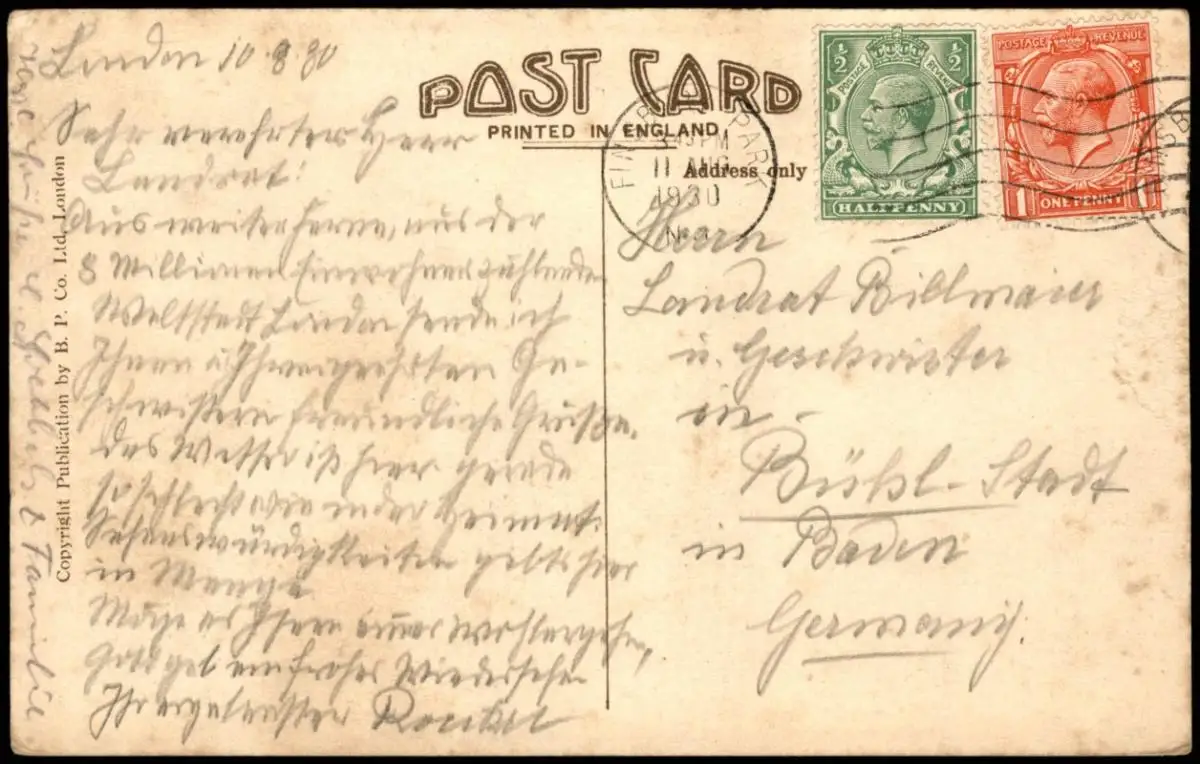 London 10.8.30
Sehr verehrter Herr
Landrat!
Aus weiter Ferne, aus der
8 Millionen Einwohner zählenden
Weltstadt London sende ich
Ihnen u. Ihren geehrten Ge-
schwistern freundliche Grüße.
Das Wetter ist hier gerade
so schlecht wie in der Heimat.
Sehenswürdigkeiten gibts hier
in Menge
Möge es Ihnen immer wohlergehen,
Gott geb ein frohes Wiedersehen
Ihr ergebenster
& Familie
Copyright Publication by B. P. Co. Ltd. London
POST CARD
PRINTED IN ENGLAND.
Address only
FINSBURY PARK
PM
11 AUG
1930
N.4
½ ½
POSTAGE REVENUE
HALFPENNY
POSTAGE REVENUE
1 ONE PENNY 1
Herrn
Landrat Billmaier
u. Geschwister
in
Bühl-Stadt
in Baden
Germany.